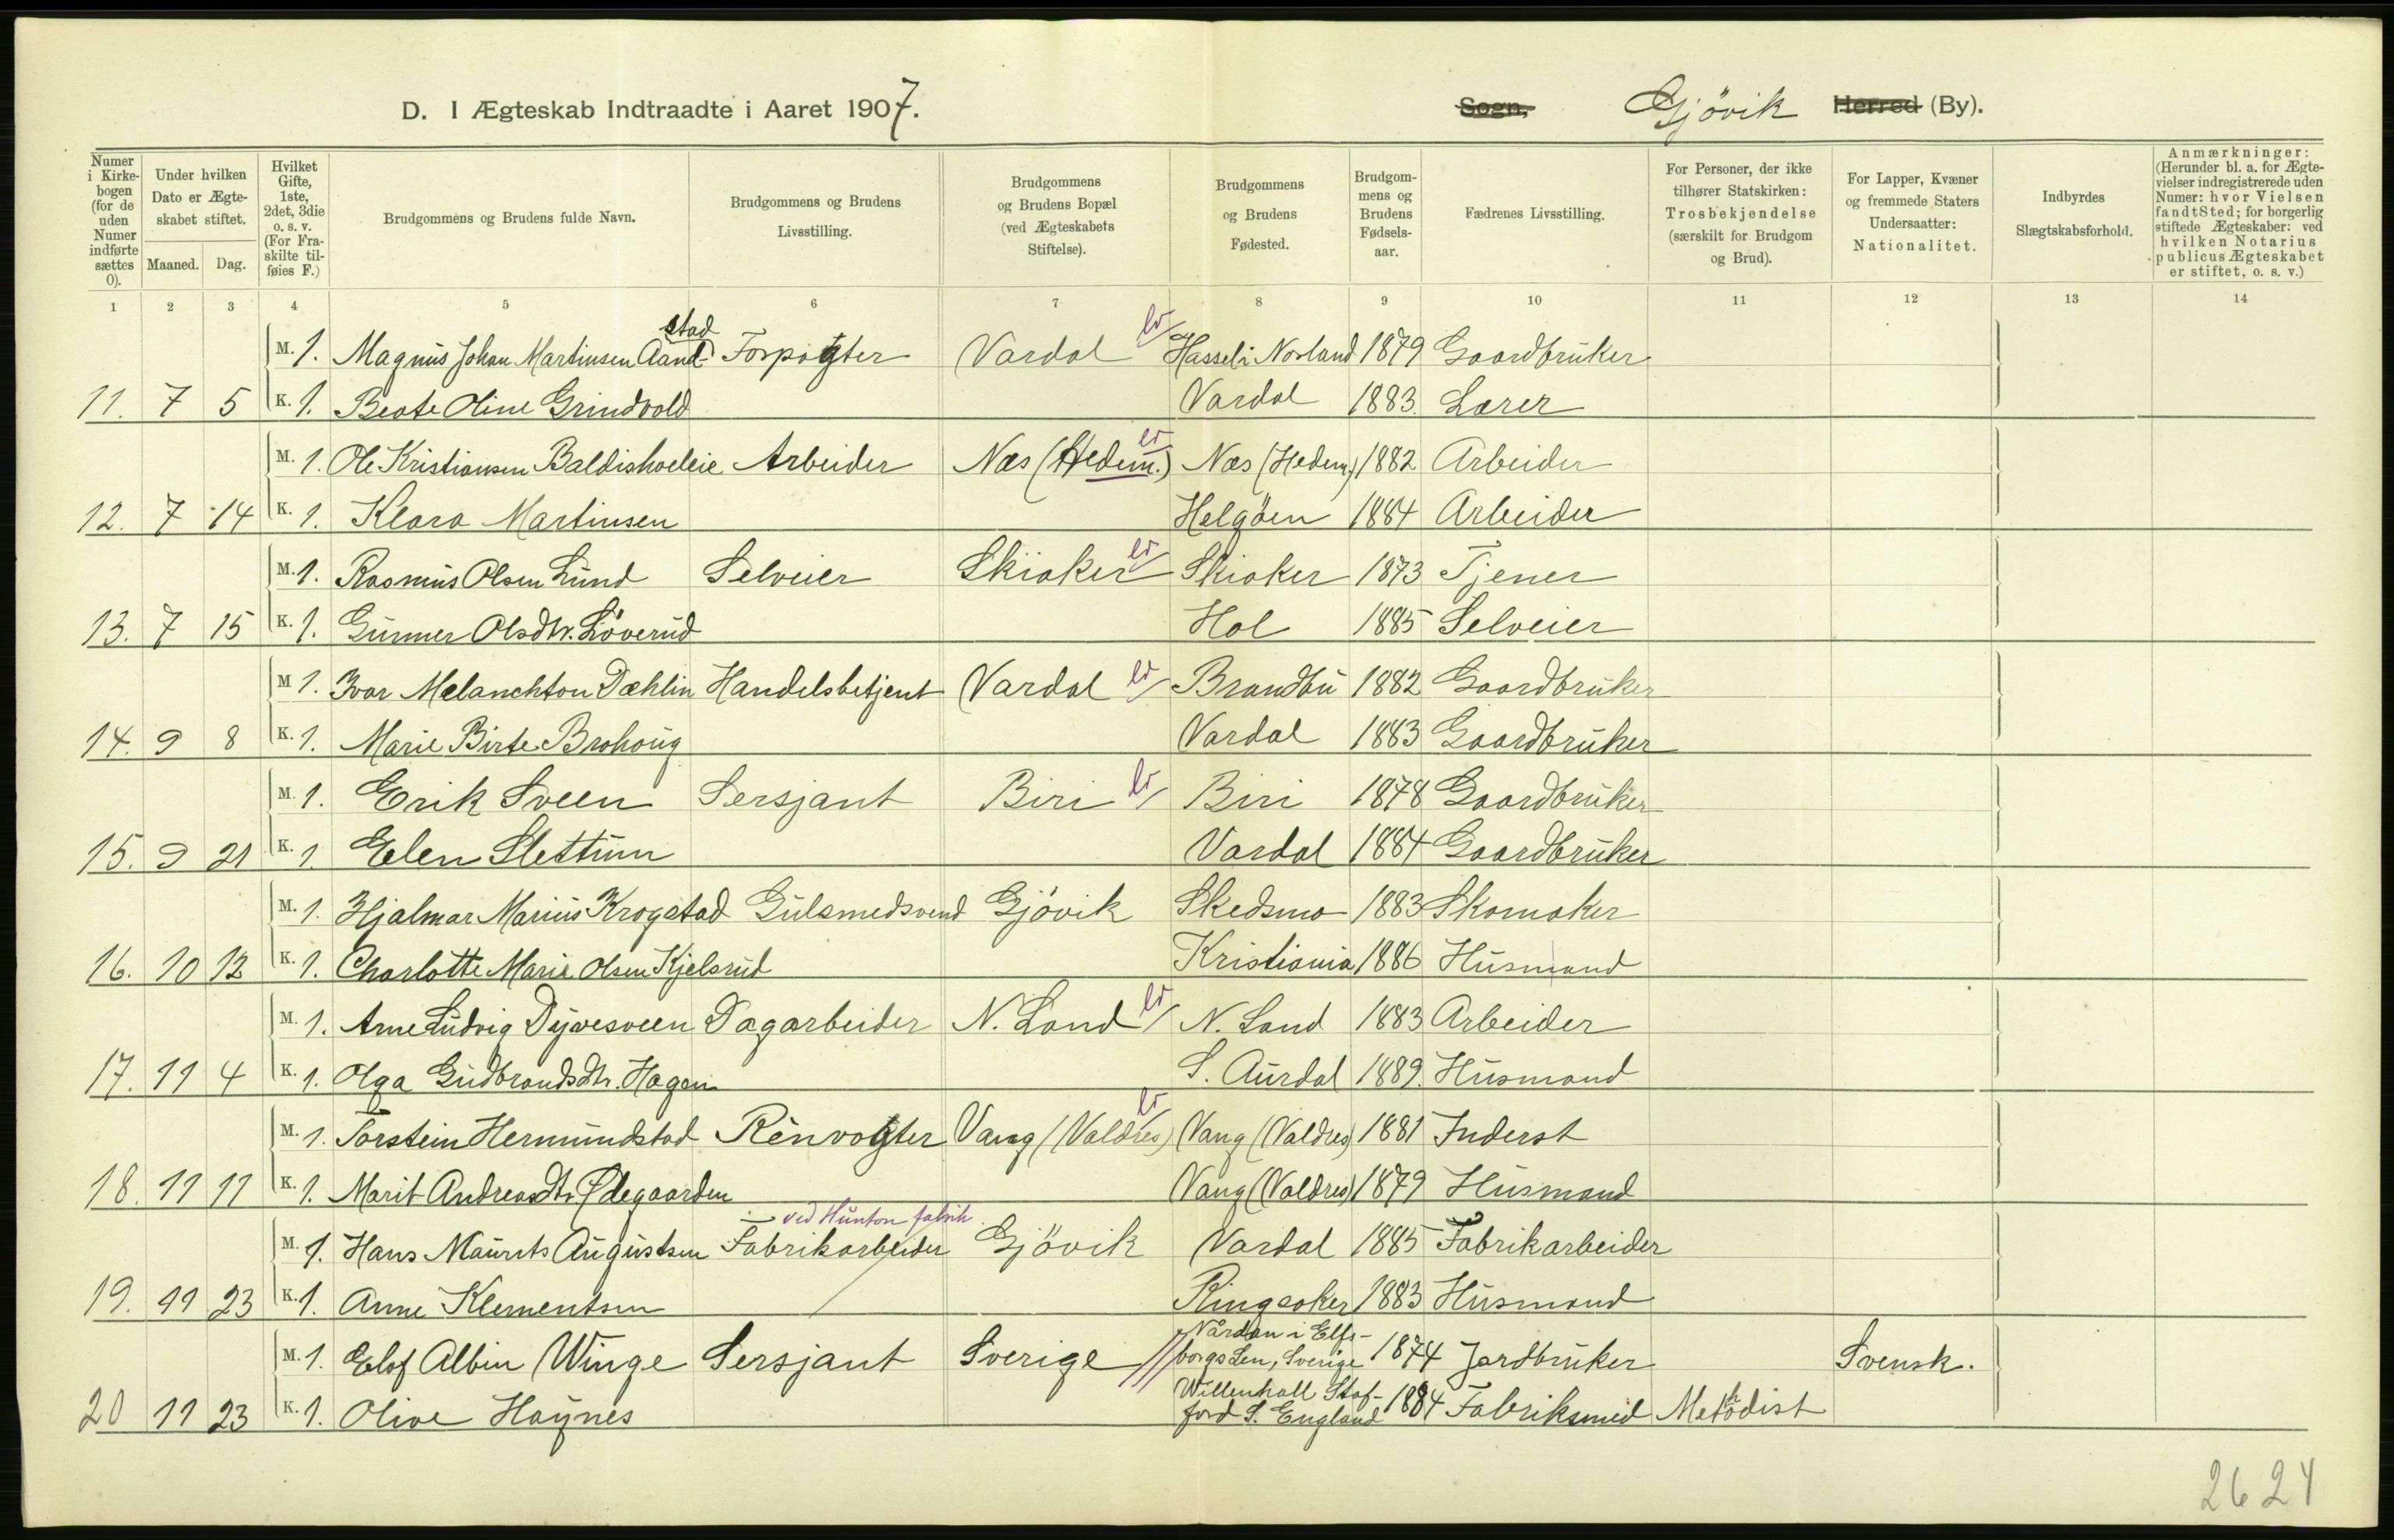 D. I Ægteskab Indtraadte i Aaret 1907. Sogn, Gjövik Herred (By).
Numer i Kirkebogen (for de uden Numer indførte sættes 0). Under hvilken Dato er Ægteskabet stiftet. Maaned. Dag. Hvilket Gifte, 1ste, 2det, 3die o. s. v. (For Fraskilte tilføies F.) Brudgommens og Brudens fulde Navn. Brudgommens og Brudens Livsstilling. Brudgommens og Brudens Bopæl (ved Ægteskabets Stiftelse). Brudgommens og Brudens Fødested. Brudgommens og Brudens Fødselsaar. Fædrenes Livsstilling. For Personer, der ikke tilhører Statskirken: Trosbekjendelse (særskilt for Brudgom og Brud). For Lapper, Kvæner og fremmede Staters Undersaatter: Nationalitet. Indbyrdes Slægtskabsforhold. Anmærkninger: (Herunder bl. a. for Ægtevielser indregistrerede uden Numer: hvor Vielsen fandt Sted; for borgerlig stiftede Ægteskaber: ved hvilken Notarius publicus Ægteskabet er stiftet, o. s. v.)
1 2 3 4 5 6 7 8 9 10 11 12 13 14
M. 1. Magnus Johan Martinsen Aandstad Forpagter Vardal Hassel i Norland 1879 Gaardbruker
11. 7 5 K. 1. Beate Oline Grindvold Vardal 1883. Lærer
M. 1. Ole Kristiansen Baldishoeleie Arbeider Næs (Hedem.) Næs (Hedem.) 1882 Arbeider
12. 7 14 K. 1. Klara Martinsen Helgöen 1884 Arbeider
M. 1. Rasmus Olsen Lund Selveier Skiaker Skiaker 1873 Tjener
13. 7 15 K. 1. Gunner Olsdtr. Löverud Hol 1885 Selveier
M 1. Ivar Melanchton Dæhlin Handelsbetjent Vardal Brandbu 1882 Gaardbruker
14. 9 8 K. 1. Marie Birte Brohoug Vardal 1883 Gaardbruker
M. 1. Erik Sveen Sersjant Biri Biri 1878 Gaardbruker
15. 9 21 K. 1. Elen Slettum Vardal 1884 Gaardbruker
M. 1. Hjalmar Marius Krogstad Gulsmedsvend Gjövik Skedsmo 1883 Skomaker
16. 10 12 K. 1. Charlotte Marie Olsen Kjelsrud Kristiania 1886 Husmand
M. 1. Arne Ludvig Dyvesveen Dagarbeider N. Land N. Land 1883 Arbeider
17. 11 4 K. 1. Olga Gudbrandsdtr. Hagen S. Aurdal 1889. Husmand
M. 1. Torstein Hermundstad Renvogter Vang (Valdres) Vang (Valdres) 1881 Inderst
18. 11 11 K. 1. Marit Andreasdtr Ødegaarden Vang (Valdres) 1879 Husmand
ved Hunton fabrik
M. 1. Hans Maurits Augustsen Fabrikarbeider Gjövik Vardal 1885 Fabrikarbeider
19. 11 23 K. 1. Anne Klementsen Ringsaker 1883 Husmand
M. 1. Elof Albin Winge Sersjant Sverige Vårdan i Elfsborgs Len, Sverige 1874 Jordbruker Svensk.
20 11 23 K. 1. Olive Haynes Willenhall Stafford S. England 1884 Fabriksmed Metodist
2624